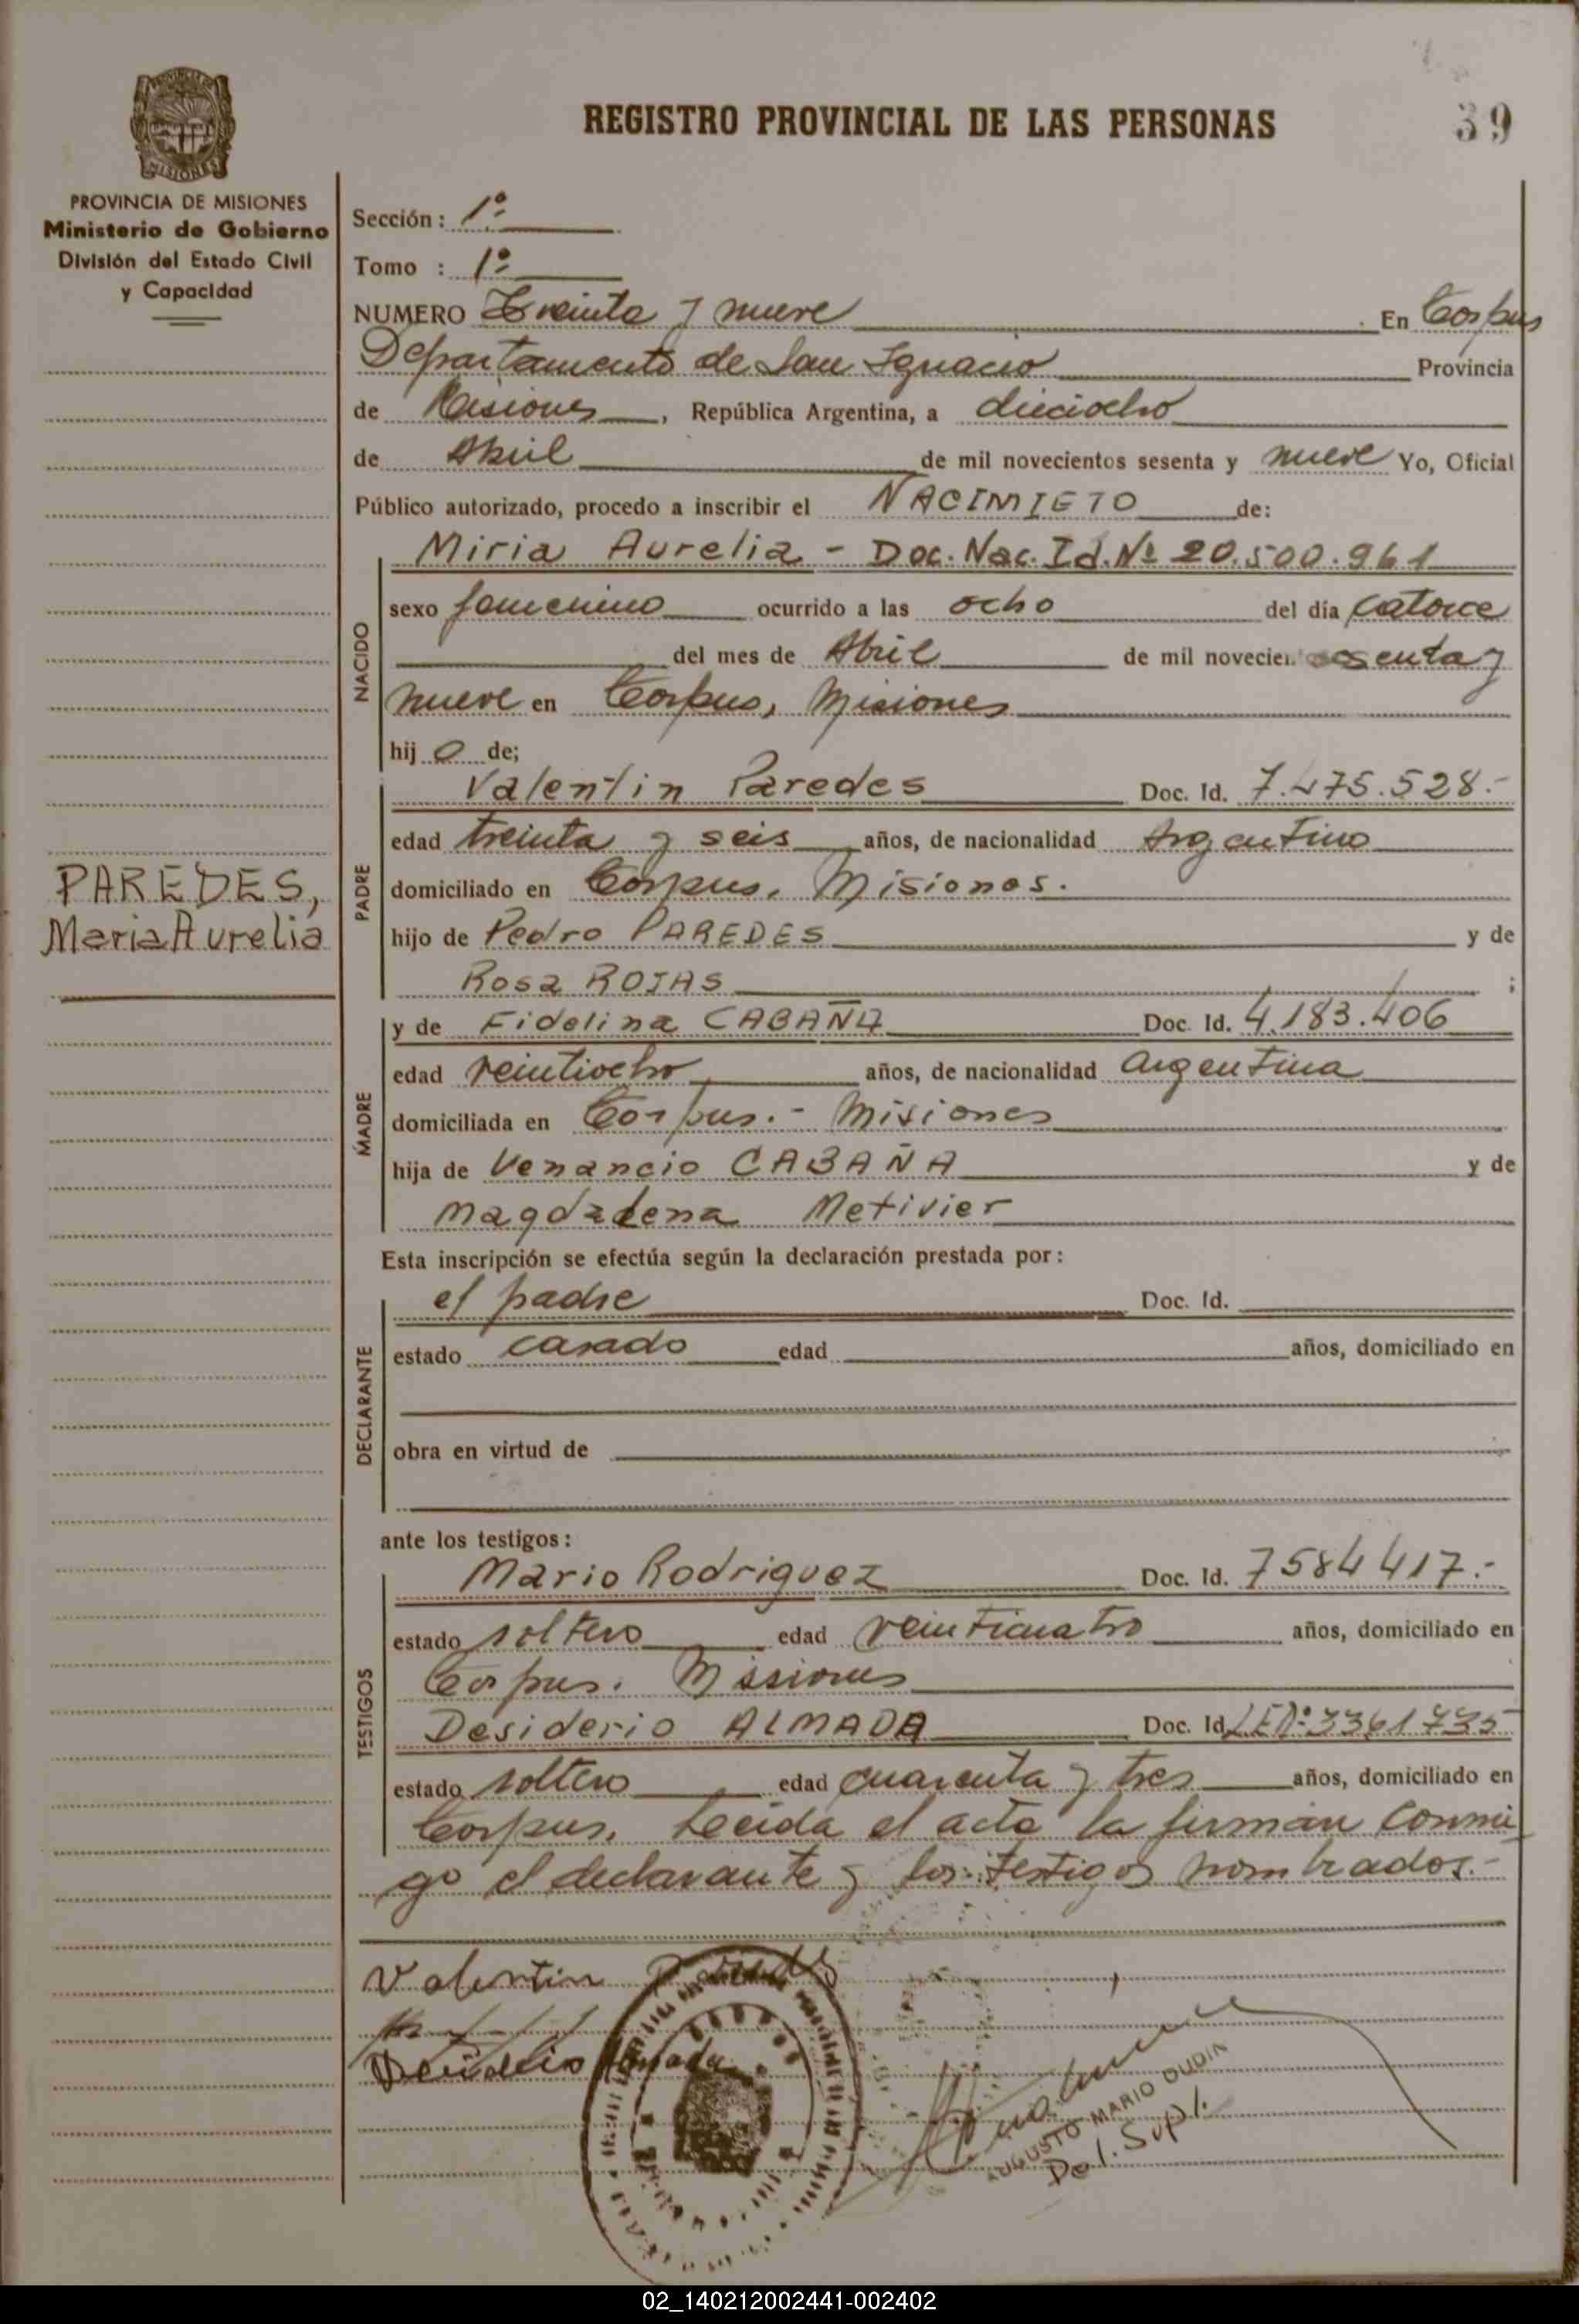 REGISTRO PROVINCIAL DE LAS PERSONAS
39
MISIONES
PROVINCIA DE MISIONES
Ministerio de Gobierno
División del Estado Civil
y Capacidad
PAREDES,
Maria Aurelia
Sección: 1º
Tomo : 1º
NUMERO Treinta y nueve En Corpus
Departamento de San Ignacio Provincia
de Misiones, República Argentina, a dieciocho
de Abril de mil novecientos sesenta y nueve Yo, Oficial
Público autorizado, procedo a inscribir el NACIMIETO de:
NACIDO
Miria Aurelia - Doc. Nac. Id. Nº 20.500.961
sexo femenino ocurrido a las ocho del día catorce
del mes de Abril de mil novecien. sesenta y
nueve en Corpus, Misiones
hij a de;
PADRE
Valentin Paredes Doc. Id. 7.475.528.-
edad treinta y seis años, de nacionalidad Argentino
domiciliado en Corpus, Misiones.
hijo de Pedro PAREDES y de
Rosa ROJAS ;
MADRE
y de Fidelina CABAÑA Doc. Id. 4.183.406
edad veintiocho años, de nacionalidad argentina
domiciliada en Corpus.- Misiones
hija de Venancio CABAÑA y de
Magdalena Metivier
Esta inscripción se efectúa según la declaración prestada por:
DECLARANTE
el padre Doc. Id.
estado casado edad años, domiciliado en
obra en virtud de
ante los testigos:
TESTIGOS
Mario Rodriguez Doc. Id. 7584417.-
estado soltero edad veinticuatro años, domiciliado en
Corpus. Misiones
Desiderio ALMADA Doc. Id. LENº 3361735
estado soltero edad cuarenta y tres años, domiciliado en
Corpus. Leida el acta la firman conmi
go el declarante y los testigos nombrados.-
Valentin Paredes
Desiderio Almada
AUGUSTO MARIO DUDIN
Del. Supl.
02_140212002441-002402